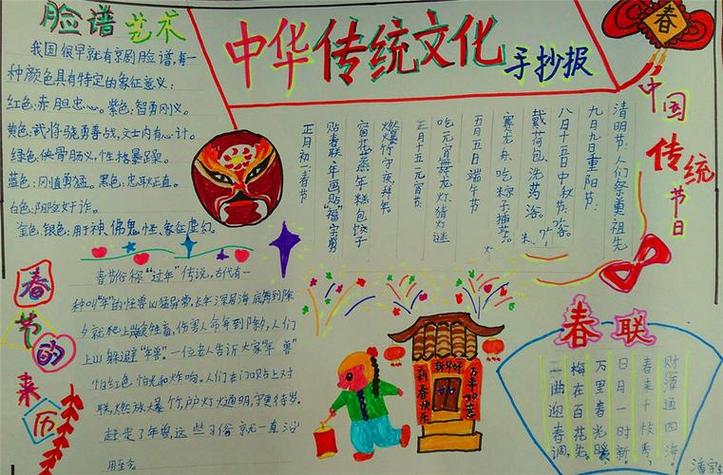 脸谱艺术
我国很早就有京剧脸谱,每一
种颜色具有特定的象征意义:
红色:赤胆忠心。紫色:智勇刚义。
黄色:武将骁勇善战,文士内有心计。
绿色:侠骨肠义,性格暴躁。
蓝色:刚直勇猛。黑色:忠耿正直。
白色:阴险奸诈。
金色、银色:用于神、佛、鬼、怪,象征虚幻。
中华传统文化
手抄报
春
中国传统节日
正月初一:春节
贴春联、年画贴“福”字剪
窗花、蒸年糕包饺子
燃爆竹守夜,拜年
正月十五元宵节
吃元宵舞龙灯、猜灯谜
五月五日端午节
赛龙舟、吃粽子插艾。
戴荷包、洗药浴。
八月十五日中秋节:
九月九日重阳节:
清明节:人们祭奠祖先
春节的来历
春节俗称“过年”传说,古代有一
种叫“年”的怪兽凶猛异常,长年深居海底每到除
夕就爬上岸
伤害人命每到除夕,人们
上山躲避“年兽”一位老人告诉大家“年兽”
怕红色、怕光和炸响。人们在门口贴上对
联,燃放大爆竹,户户灯火通明,守更待岁。
赶走了年兽,这些习俗就一直沿
新年好
新春快乐
万事如意
春联
财源通四海
春来千秋秀,
日月一时新
万里春光暖,
梅在百花先,
二曲迎春调,